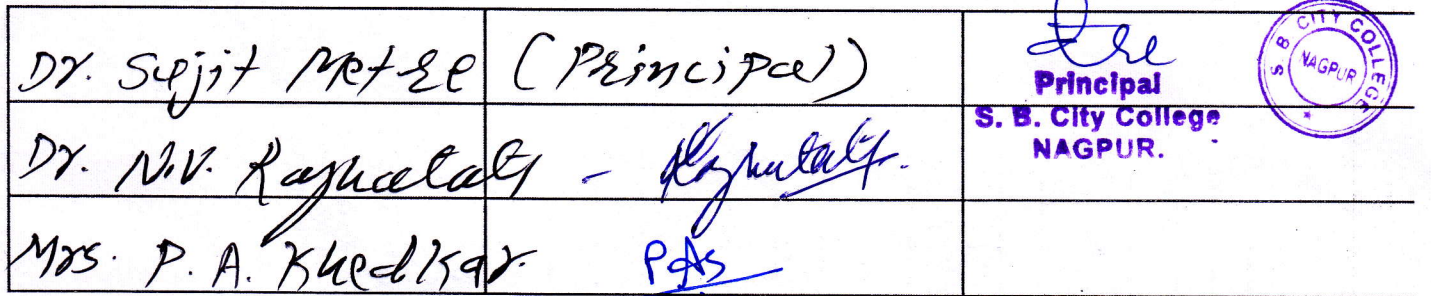 Dr. Sujit Metre (Principal)
Principal
S. B. City College
NAGPUR.
S B CITY COLLEGE
NAGPUR
Dr. N.V.
Mrs. P. A. Khedkar.